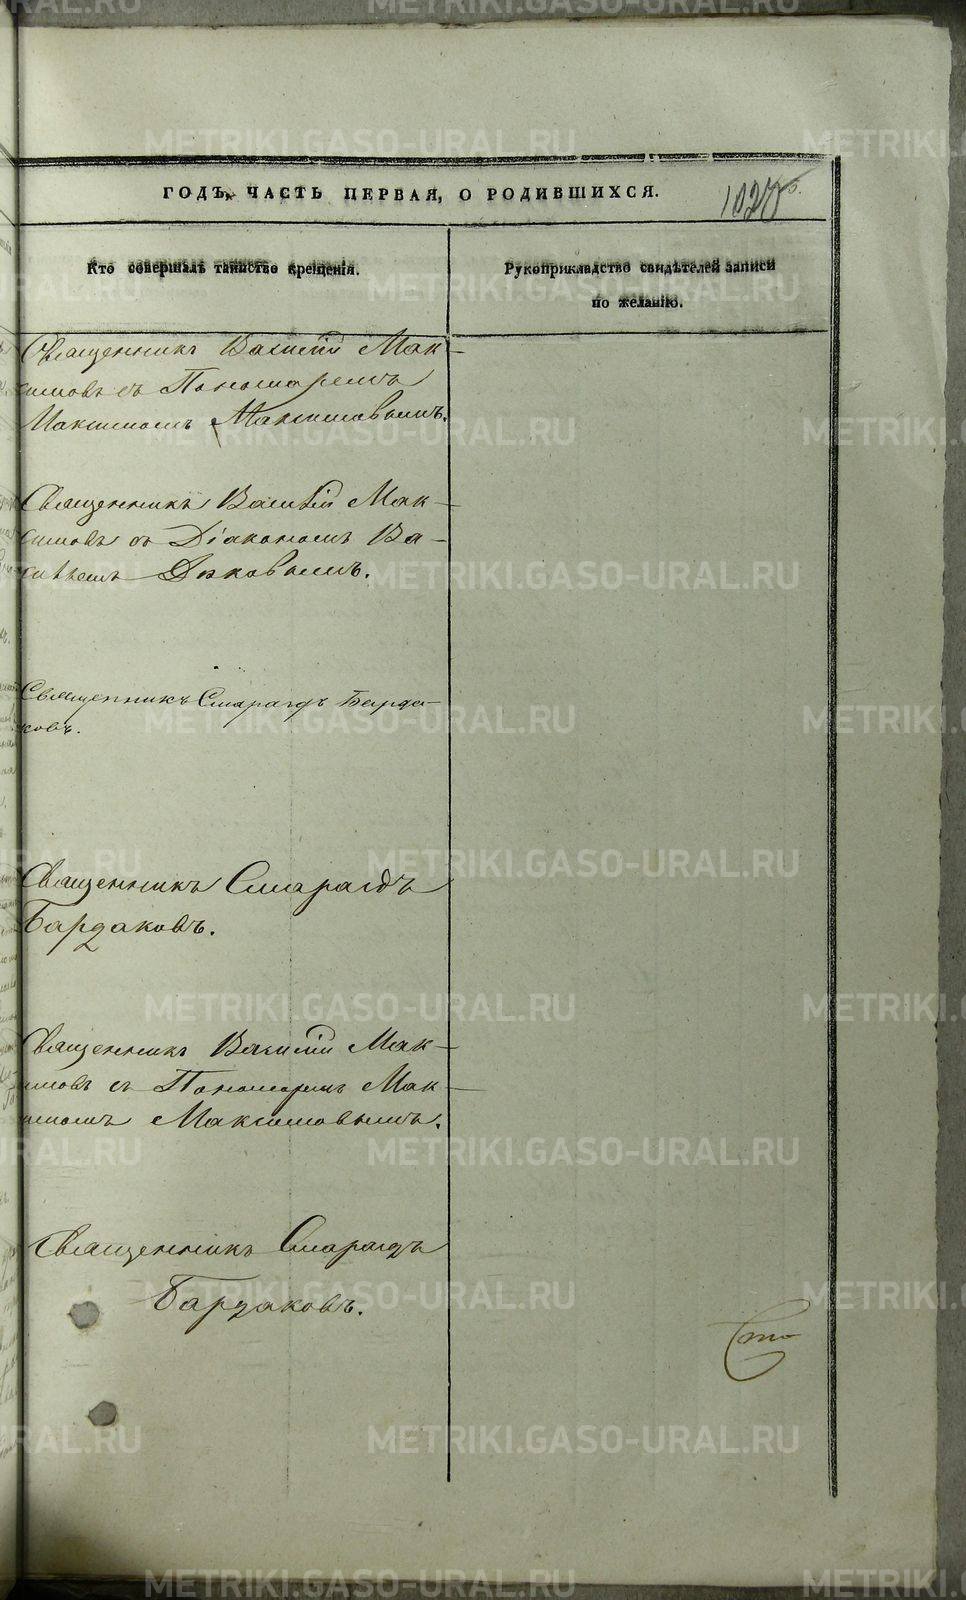 ГОДЪ, ЧАСТЬ ПЕРВАЯ, О РОДИВШИХСЯ.
Кто совершалъ таинство крещенія.
Рукоприкладство свидѣтелей записи
по желанію.
Священникъ Василій Мак-
симовъ съ Пономаремъ
Максимомъ Максимовымъ.
Священникъ Василій Мак-
симовъ съ Діакономъ Ва-
силіемъ
Священникъ Смарагдъ Барда-
ковъ.
Священникъ Смарагдъ
Бардаковъ.
Священникъ Василій Мак-
симовъ съ Пономаремъ Мак-
симомъ Максимовымъ.
Священникъ Смарагдъ
Бардаковъ.
Сто
METRIKI.GASO-URAL.RU